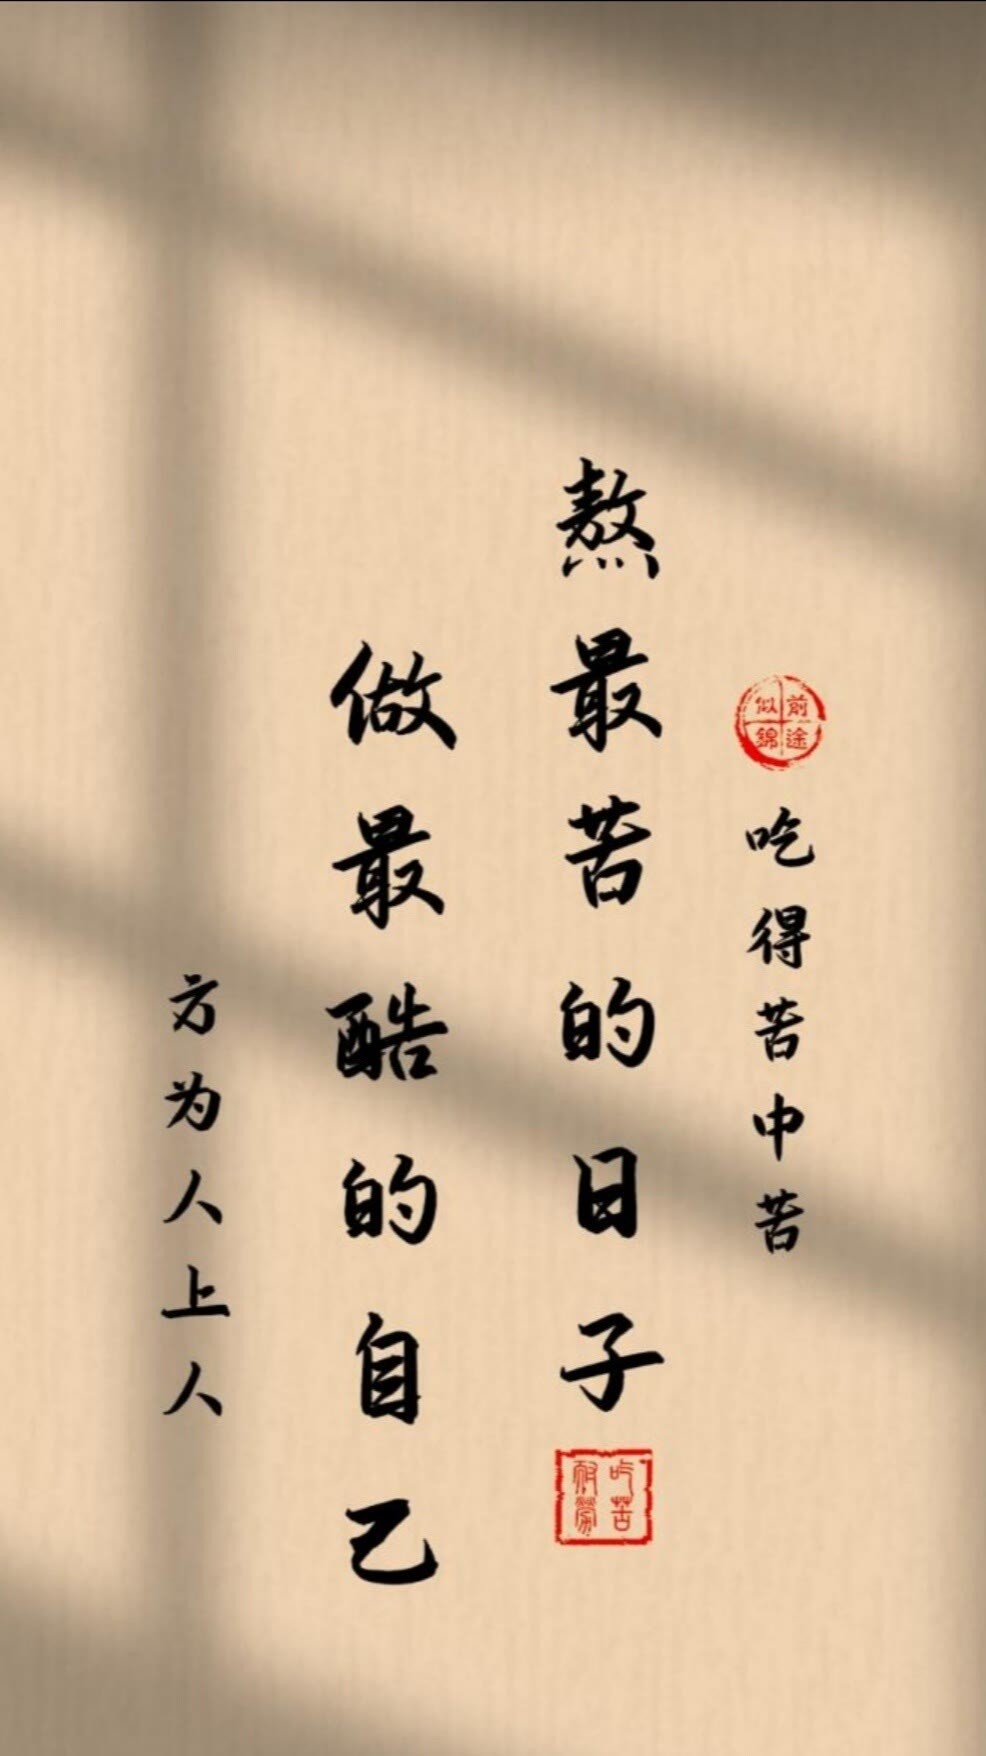 前途似錦
吃得苦中苦
熬最苦的日子
吃苦耐勞
做最酷的自己
方为人上人